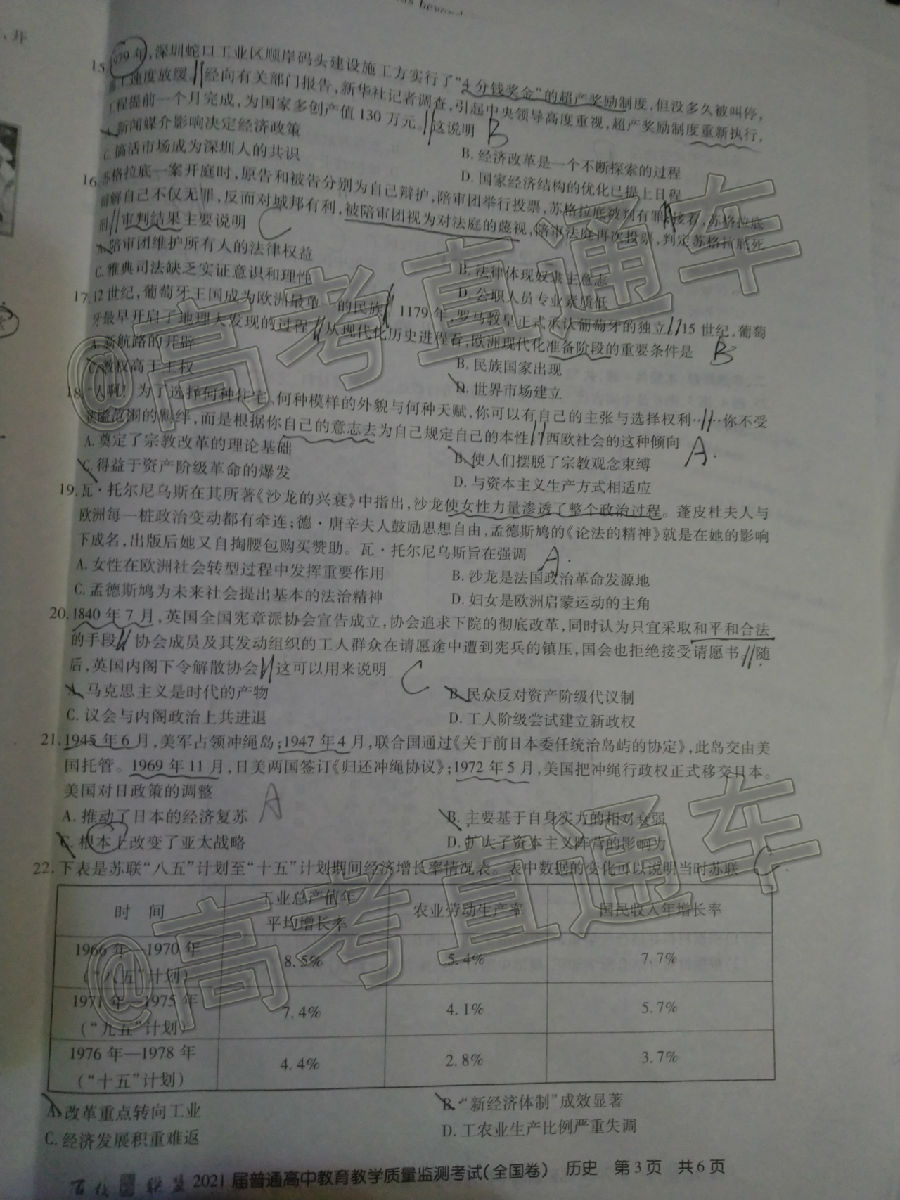 15. 1979年,深圳蛇口工业区顺岸码头建设施工方实行了“4分钱奖金”的超产奖励制度,但没多久被叫停,
工速度放缓。经向有关部门报告,新华社记者调查,引起中央领导高度重视,超产奖励制度重新执行,
工程提前一个月完成,为国家多创产值130万元。这说明 B
A.新闻媒介影响决定经济政策
B. 经济改革是一个不断探索的过程
C. 搞活市场成为深圳人的共识
D. 国家经济结构的优化已提上日程
16. 苏格拉底一案开庭时,原告和被告分别为自己辩护,陪审团举行投票,苏格拉底被判有罪。接着,苏格拉底
辩解自己不仅无罪,反而对城邦有利,被陪审团视为对法庭的蔑视,陪审法庭再次投票,判定苏格拉底死
刑。审判结果主要说明 C
A.陪审团维护所有人的法律权益
B. 法律体现奴隶主意志
C. 雅典司法缺乏实证意识和理性
D. 公职人员专业素质低
17. 12世纪,葡萄牙王国成为欧洲最早的民族 1179年,罗马教皇正式承认葡萄牙的独立。15世纪,葡萄
牙最早开启了地理大发现的过程。从现代化历史进程看,欧洲现代化准备阶段的重要条件是 B
A.新航路的开辟
B. 民族国家出现
C.教权高于王权
D. 世界市场建立
18. “人啊! 为了选择何种住宅、何种模样的外貌与何种天赋,你可以有自己的主张与选择权利……你不受
的羁绊,而是根据你自己的意志去为自己规定自己的本性。”西欧社会的这种倾向 A.
A. 奠定了宗教改革的理论基础
B. 使人们摆脱了宗教观念束缚
C. 得益于资产阶级革命的爆发
D. 与资本主义生产方式相适应
19. 瓦·托尔尼乌斯在其所著《沙龙的兴衰》中指出,沙龙使女性力量渗透了整个政治过程。蓬皮杜夫人与
欧洲每一桩政治变动都有牵连;德·唐辛夫人鼓励思想自由,孟德斯鸠的《论法的精神》就是在她的影响
下成名,出版后她又自掏腰包购买赞助。瓦·托尔尼乌斯旨在强调 A.
A. 女性在欧洲社会转型过程中发挥重要作用
B. 沙龙是法国政治革命发源地
C. 孟德斯鸠为未来社会提出基本的法治精神
D. 妇女是欧洲启蒙运动的主角
20. 1840年7月,英国全国宪章派协会宣告成立,协会追求下院的彻底改革,同时认为只宜采取和平和合法
的手段。协会成员及其发动组织的工人群众在请愿途中遭到宪兵的镇压,国会也拒绝接受请愿书。随
后,英国内阁下令解散协会。这可以用来说明 C
A. 马克思主义是时代的产物
B. 民众反对资产阶级代议制
C. 议会与内阁政治上共进退
D. 工人阶级尝试建立新政权
21. 1945年6月,美军占领冲绳岛;1947年4月,联合国通过《关于前日本委任统治岛屿的协定》,此岛交由美
国托管。1969年11月,日美两国签订《归还冲绳协议》;1972年5月,美国把冲绳行政权正式移交日本。
美国对日政策的调整 A
A. 推动了日本的经济复苏
B. 主要基于自身实力的相对衰弱
C. 根本上改变了亚太战略
D. 扩大了资本主义阵营的影响力
22. 下表是苏联“八五”计划至“十五”计划期间经济增长率情况表。表中数据的变化可以说明当时苏联 C
时 间 工业总产值年平均增长率 农业劳动生产率 国民收入年增长率
1966年—1970年(“八五”计划) 8.5% 5.4% 7.7%
1971年—1975年(“九五”计划) 7.4% 4.1% 5.7%
1976年—1978年(“十五”计划) 4.4% 2.8% 3.7%
A. 改革重点转向工业
B. “新经济体制”成效显著
C. 经济发展积重难返
D. 工农业生产比例严重失调
百校 联盟 2021届普通高中教育教学质量监测考试(全国卷) 历史 第3页 共6页
@高考直通车
@高考直通车